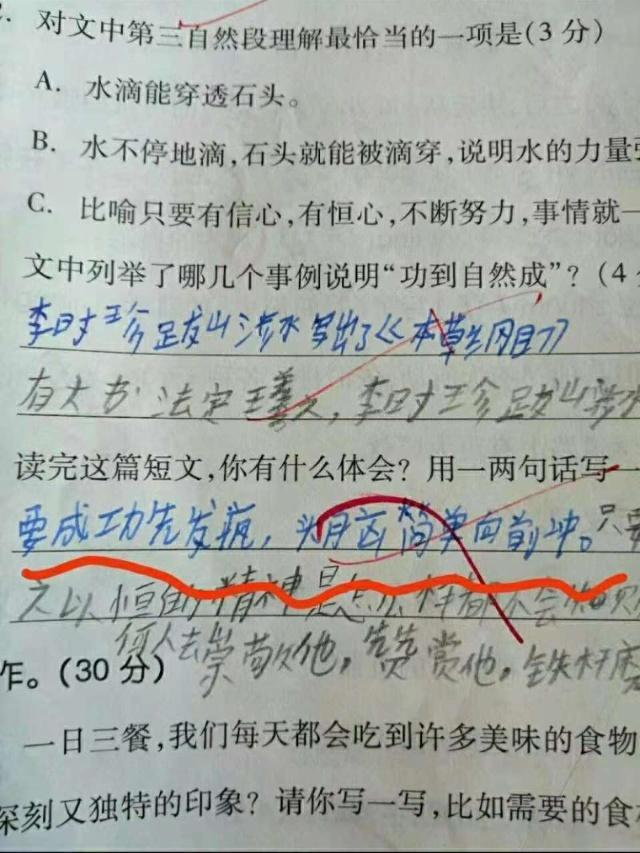 对文中第三自然段理解最恰当的一项是(3 分)
A. 水滴能穿透石头。
B. 水不停地滴,石头就能被滴穿,说明水的力量
C. 比喻只要有信心,有恒心,不断努力,事情就一
文中列举了哪几个事例说明“功到自然成”? (4
李时珍跋山涉水写出了《本草纲目》
有大书法定王羲之，李时珍跋山涉水
读完这篇短文,你有什么体会? 用一两句话写一
要成功先发疯，头简单向前冲。只要
之以恒的精神是怎么样都不会
何人去崇敬他。赞赏他。铁杵磨
作。(30 分)
一日三餐,我们每天都会吃到许多美味的食物
深刻又独特的印象? 请你写一写,比如需要的食材